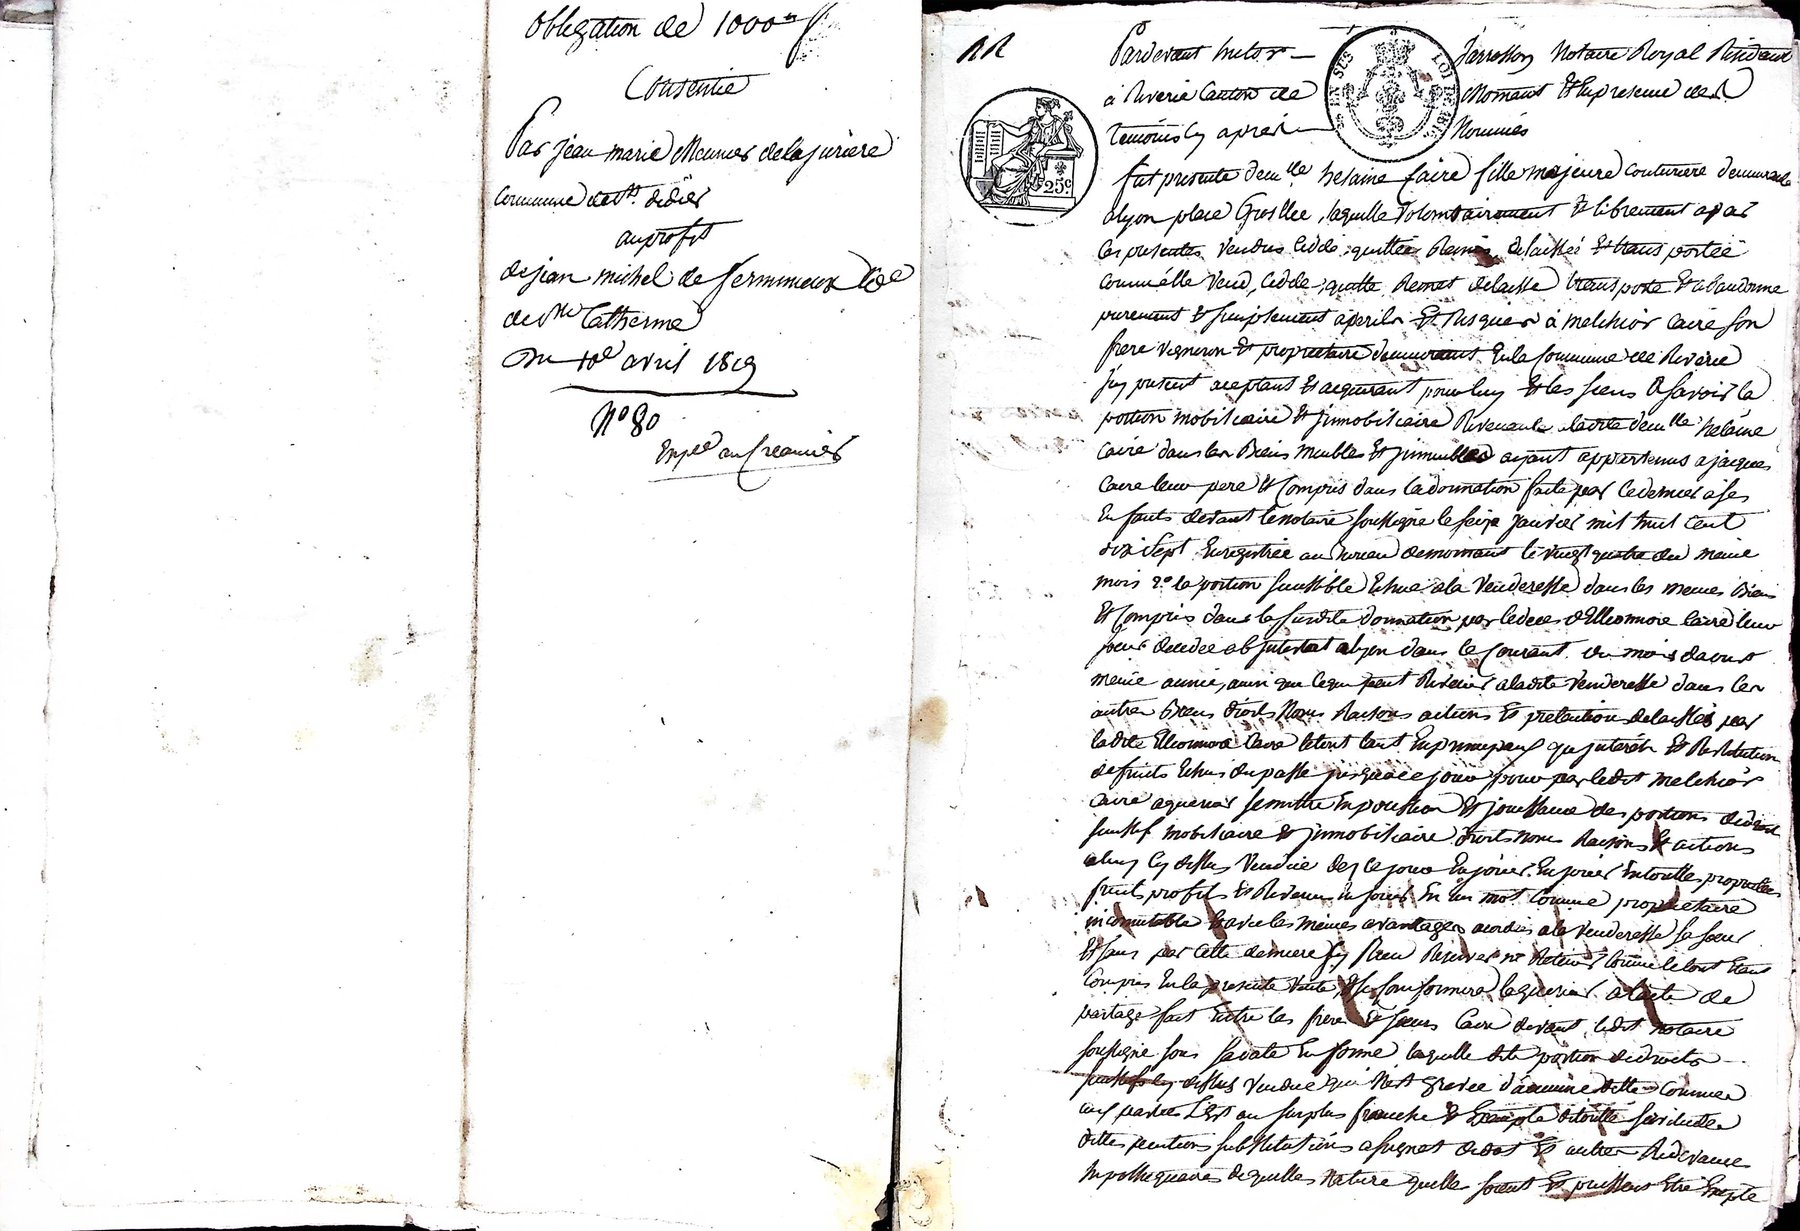 Obligation de 1000 #
Consentie
Par jean marie Meunier de la
commune de st. didier
au profit
de jean michel de
de Ste Catherine
Du 10e avril 1819
No 80
RR
Pardevant Jarrosson Notaire Royal Résidant
à Riverie Canton de Mornant Et En presence des
Temoins cy apres Nommés
25c
fut presente demlle helaine Caire fille majeure couturiere demeurante
a lyon place Grollée, laquelle volontairement & librement a par
les presentes vendus cédé quitté Remis, delaissé Et transportée
comme elle Vend, cedde, quitte, Remet delaisse transporte Et abandonne
purement & simplement à peril Et Risque à Melchior Caire son
frere vigneron Et propriétaire demeurant En la Commune de Riverie
Icy present aceptant Et acquerant pour luy Et les siens A Savoir la
portion mobiliaire & Jmmobiliaire Revenante a ladite demlle helaine
Caire dans les Biens meubles Et Jmmeubles ayant appartenus a jacques
Caire leur pere & Compris dans la donnation faite par ce dernier à ses
Enfants devant le notaire soussigné le seize Janvier mil huit cent
dix Sept Enregistrée au Bureau de mornant le vingt quatre du meme
mois 2o la portion Echue a la Venderesse dans les memes Biens
Et Compris dans la susdite donnation par le deces d'Elleonnore Caire leur
soeur decedée ab Jntestat a lyon dans le Courant du mois daoust
meme année, ainsi que ce que peut Revenir a ladite Venderesse dans les
autres Biens droits Noms Raisons actions Et pretention delaissés par
ladite Elleonnore Caire le tout tant En principaux que Jnterets Et Restitution
de fruits Echus du passé jusqu'à ce jour pour par ledit Melchior
Caire aquereur se mettre En possession Et jouissance des portions
mobiliaire & jmmobiliaire droits noms Raisons Et actions
a luy cy dessus Vendue des ce jour En jouir En toutte propriétés
fruits profits Et Revenus En jouir En un mot comme propriétaire
incommutable Et avec les mêmes avantages a la Venderesse sa soeur
Et sans par cette derniere sy Rien Reserver ny Retenir comme le tout Etant
Compris En la presente Vente, Et se Conformera laquereur a lacte de
partage fait Entre les freres & soeurs Caire devant ledit notaire
soussigné sous sa date En forme laquelle dite portion de droits
cy dessus vendue qui N'est grevée d'aucune dette comme
Est au surplus franche & Exempte de toutte servitudes
dettes pentions substitutions a Et autres Redevances
hypothequaires de quelles Nature quelles soient Et puissent Etre Exepté